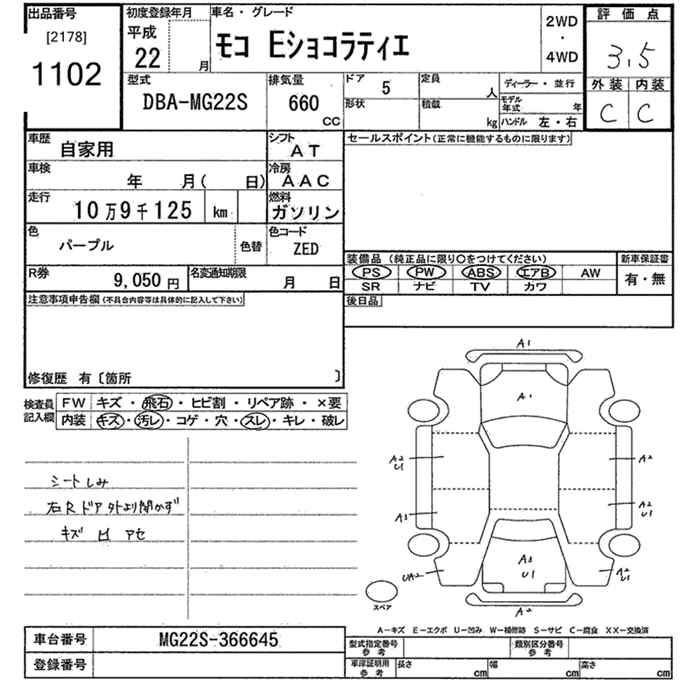 出品番号
[2178]
1102
初度登録年月
平成
22 月
車名・グレード
モコ Eショコラティエ
2WD
・
4WD
評価点
3.5
型式
DBA-MG22S
排気量
660
CC
ドア 5
形状
定員
人
積載
kg
ディーラー・並行
モデル年式 年
ハンドル 左・右
外装 内装
C C
車歴
自家用
シフト
AT
セールスポイント(正常に機能するものに限ります)
車検
年 月( 日)
冷房
AAC
走行
10万9千125 km
燃料
ガソリン
色
パープル
色替
色コード
ZED
装備品(純正品に限り〇をつけてください)
新車保証書
PS PW ABS エアB AW
有・無
SR ナビ TV カワ
R券
9,050円
名変通知期限
月 日
後日品
注意事項申告欄(不具合内容等は具体的に記入して下さい)
修復歴 有〔箇所 〕
検査員
記入欄
FW キズ・飛石・ヒビ割・リペア跡・×要
内装 キズ・汚レ・コゲ・穴・スレ・キレ・破レ
シートしみ
右Rドア外より開かず
キズ 凹 アセ
A1
A1
A2
U1
A2
A3
A2
U1
UA2
A3
U1
A2
U1
A2
スペア
A-キズ E-エクボ U-凹み W-補修跡 S-サビ C-腐食 XX-交換済
車台番号
MG22S-366645
登録番号
型式指定番号
参考
類別区分番号
参考
車庫証明用
参考
長さ cm
幅 cm
高さ cm